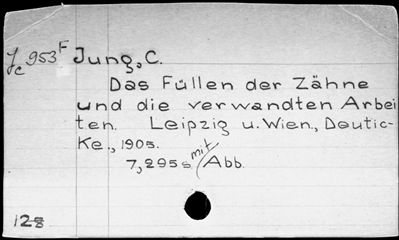 Jc 953F Jung, C.
Das Füllen der Zähne
und die verwandten Arbei
ten. Leipzig u. Wien., Deutic-
Ke., 1905.
7, 295 s mit Abb.
128